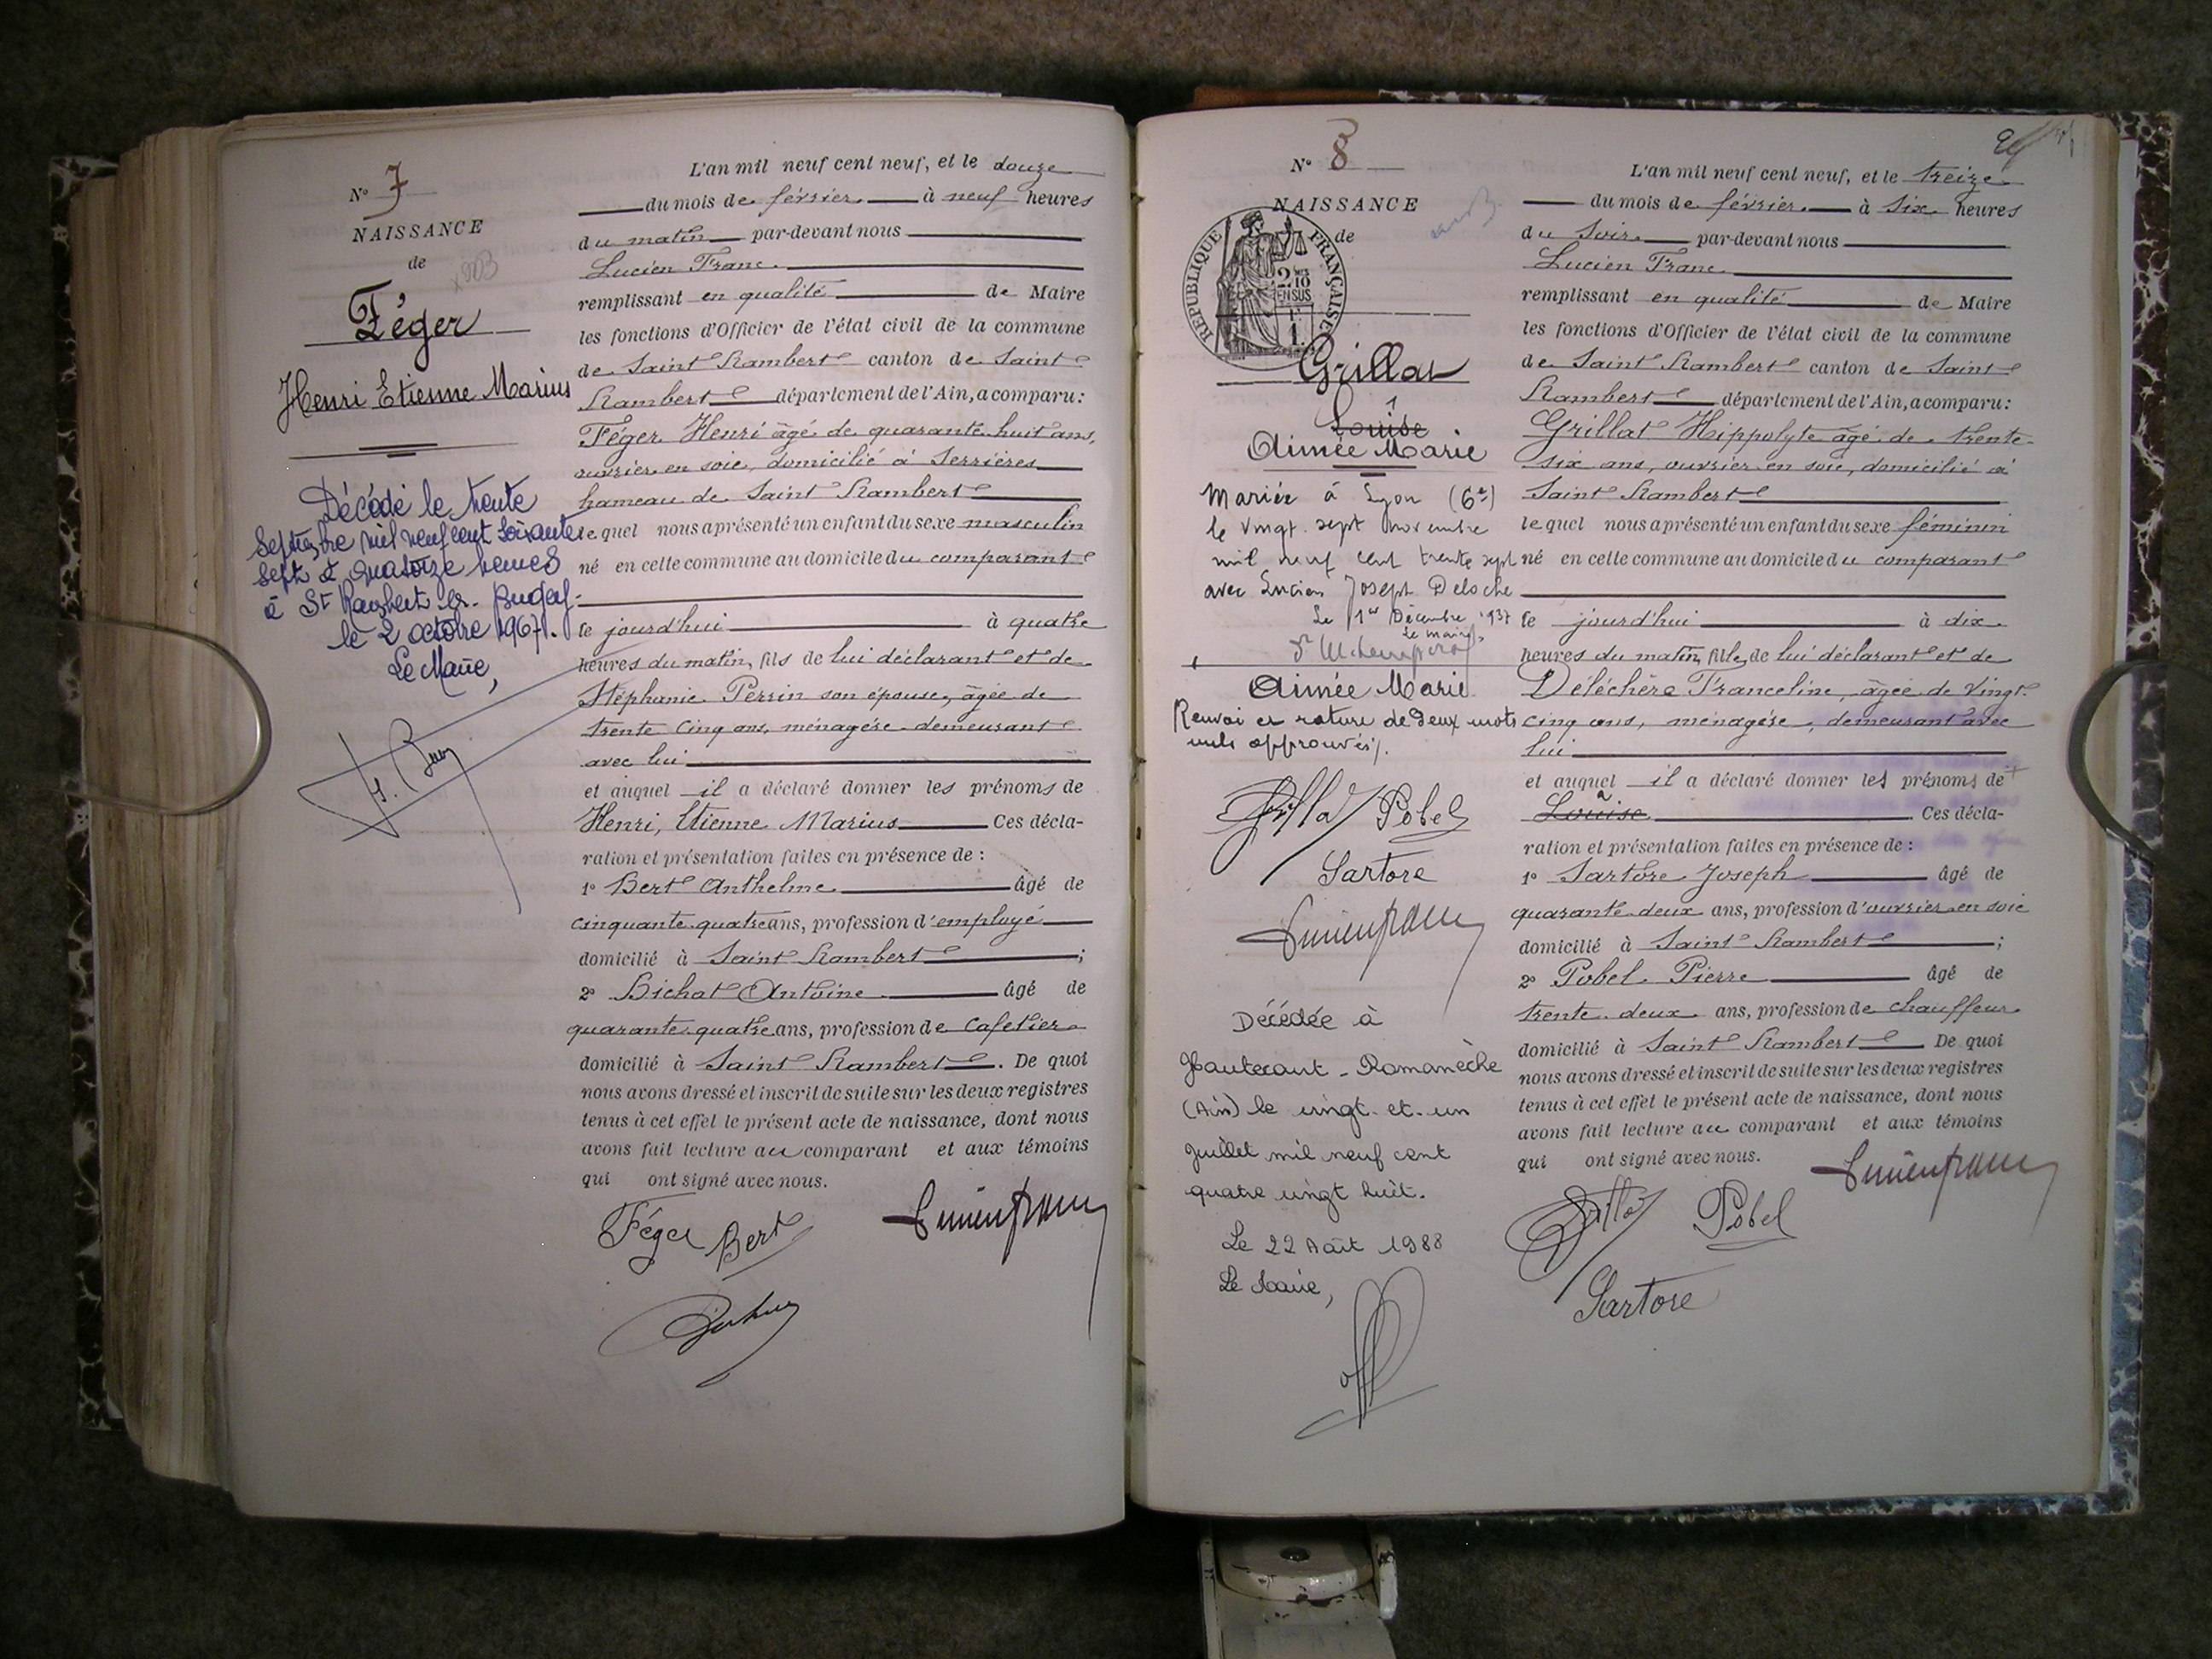 N° 7
NAISSANCE
de
Féger
Henri Etienne Marius
Décédé le trente
Septembre mil neuf cent soixante
sept à quatorze heures
à St Rambert en Bugey.
le 2 octobre 1967.
Le Maire,
L'an mil neuf cent neuf, et le douze
du mois de février à neuf heures
du matin par-devant nous
Lucien Franc.
remplissant en qualité de Maire
les fonctions d'Officier de l'état civil de la commune
de Saint Rambert canton de Saint
Rambert département de l'Ain, a comparu:
Féger Henri âgé de quarante huit ans,
ouvrier en soie, domicilié à Serrières
hameau de Saint Rambert
lequel nous a présenté un enfant du sexe masculin
né en cette commune au domicile du comparant
le jourd'hui à quatre
heures du matin, fils de lui déclarant et de
Stéphanie Perrin son épouse, âgée de
trente cinq ans, ménagère demeurant
avec lui
et auquel il a déclaré donner les prénoms de
Henri, Etienne Marius Ces décla-
ration et présentation faites en présence de :
1° Bert Anthelme âgé de
cinquante quatre ans, profession d'employé
domicilié à Saint Rambert ;
2° Bichat Antoine âgé de
quarante quatre ans, profession de cafetier
domicilié à Saint Rambert . De quoi
nous avons dressé et inscrit de suite sur les deux registres
tenus à cet effet le présent acte de naissance, dont nous
avons fait lecture au comparant et aux témoins
qui ont signé avec nous.
Féger Bert Lucien Franc
N° 8
NAISSANCE
de
RÉPUBLIQUE FRANÇAISE
Grillat
Louise
Aimée Marie
Mariée à Lyon (6e)
le vingt sept novembre
mil neuf cent trente sept
avec Lucien Joseph Deloche
Le 1er Décembre 1937
Le maire
Aimée Marie
Renvoi et rature de deux mots
nuls approuvés.
Grillat Pobel
Sartore
Lucien Franc
Décédée à
Hautecourt - Romanèche
(Ain) le vingt et un
Juillet mil neuf cent
quatre vingt huit.
Le 22 Août 1988
Le Maire,
L'an mil neuf cent neuf, et le treize
du mois de février à six heures
du soir par-devant nous
Lucien Franc
remplissant en qualité de Maire
les fonctions d'Officier de l'état civil de la commune
de Saint Rambert canton de Saint
Rambert département de l'Ain, a comparu:
Grillat Hippolyte âgé de trente
six ans, ouvrier en soie, domicilié à
Saint Rambert
lequel nous a présenté un enfant du sexe féminin
né en cette commune au domicile du comparant
le jourd'hui à dix
heures du matin, fille de lui déclarant et de
Déléchère Franceline, âgée de vingt
cinq ans, ménagère, demeurant avec
lui
et auquel il a déclaré donner les prénoms de
Louise . Ces décla-
ration et présentation faites en présence de :
1° Sartore Joseph âgé de
quarante deux ans, profession d'ouvrier en soie
domicilié à Saint Rambert ;
2° Pobel Pierre âgé de
trente deux ans, profession de chauffeur
domicilié à Saint Rambert De quoi
nous avons dressé et inscrit de suite sur les deux registres
tenus à cet effet le présent acte de naissance, dont nous
avons fait lecture au comparant et aux témoins
qui ont signé avec nous. Lucien Franc
Grillat Pobel
Sartore